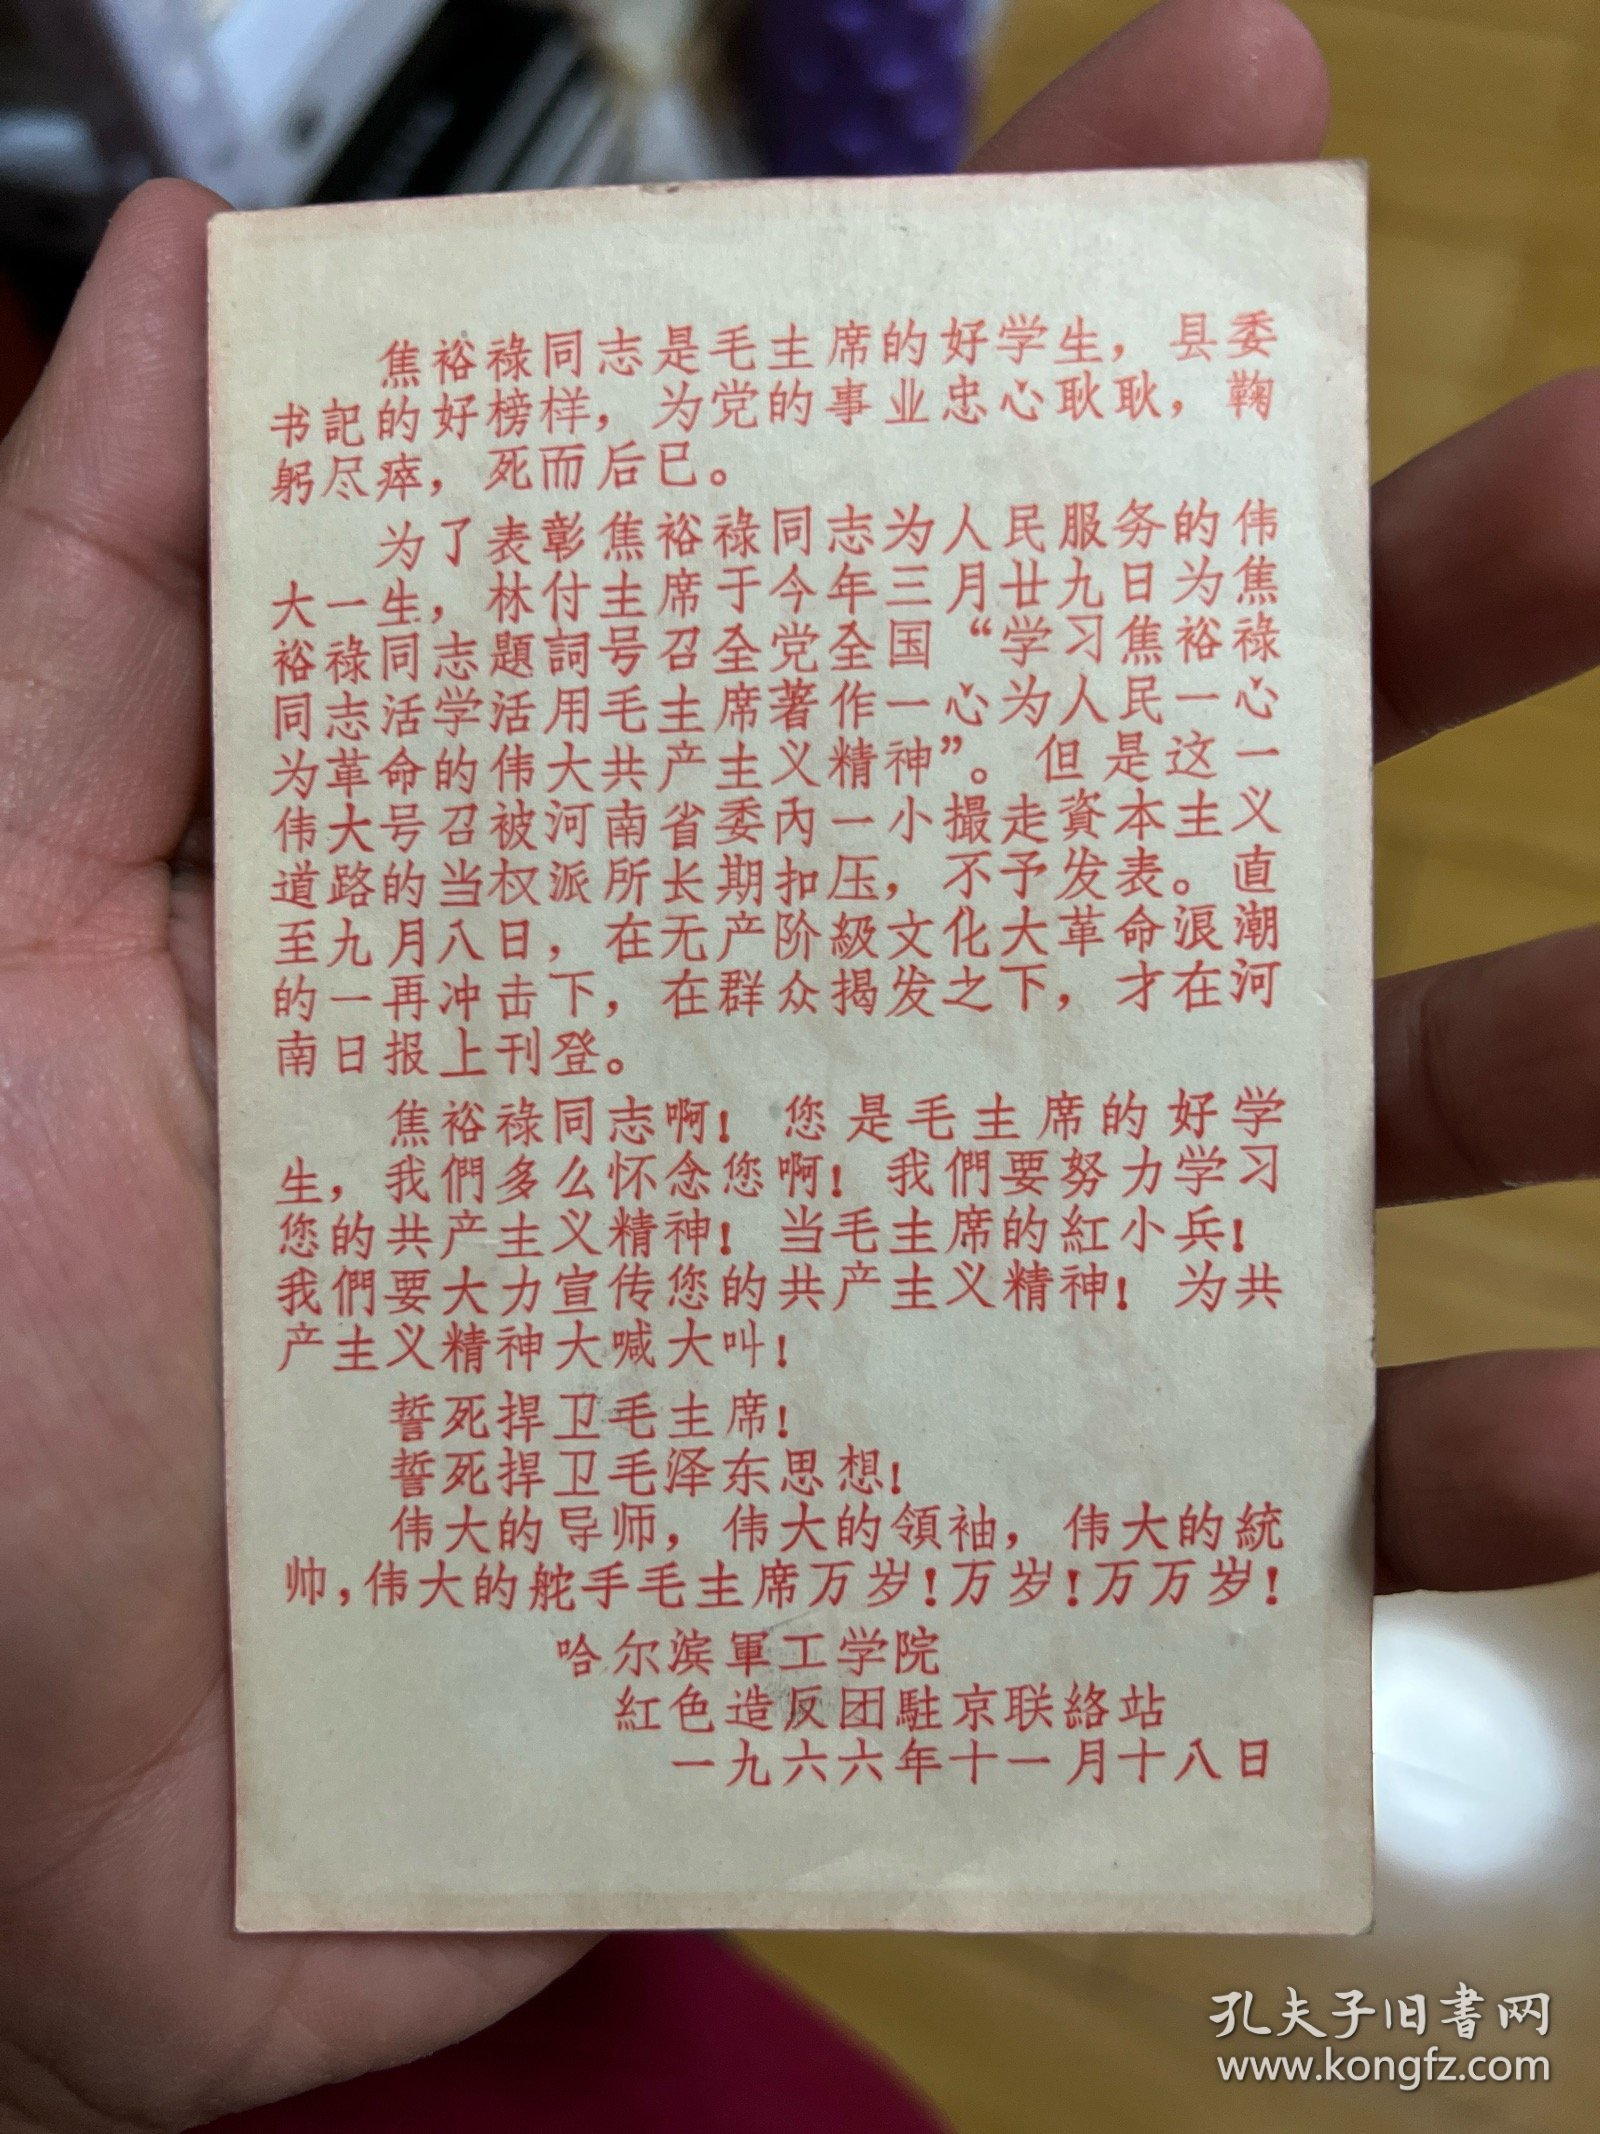 焦裕祿同志是毛主席的好学生，县委
书記的好榜样，为党的事业忠心耿耿，鞠
躬尽瘁，死而后已。
为了表彰焦裕祿同志为人民服务的伟
大一生，林付主席于今年三月廿九日为焦
裕祿同志題詞号召全党全国“学习焦裕祿
同志活学活用毛主席著作一心为人民一心
为革命的伟大共产主义精神”。但是这一
伟大号召被河南省委內一小撮走資本主义
道路的当权派所长期扣压，不予发表。直
至九月八日，在无产阶級文化大革命浪潮
的一再冲击下，在群众揭发之下，才在河
南日报上刊登。
焦裕祿同志啊！您是毛主席的好学
生，我們多么怀念您啊！我們要努力学习
您的共产主义精神！当毛主席的紅小兵！
我們要大力宣传您的共产主义精神！为共
产主义精神大喊大叫！
誓死捍卫毛主席！
誓死捍卫毛泽东思想！
伟大的导师，伟大的領袖，伟大的統
帅，伟大的舵手毛主席万岁！万岁！万万岁！
哈尔滨軍工学院
紅色造反团駐京联絡站
一九六六年十一月十八日
孔夫子旧書网
www.kongfz.com